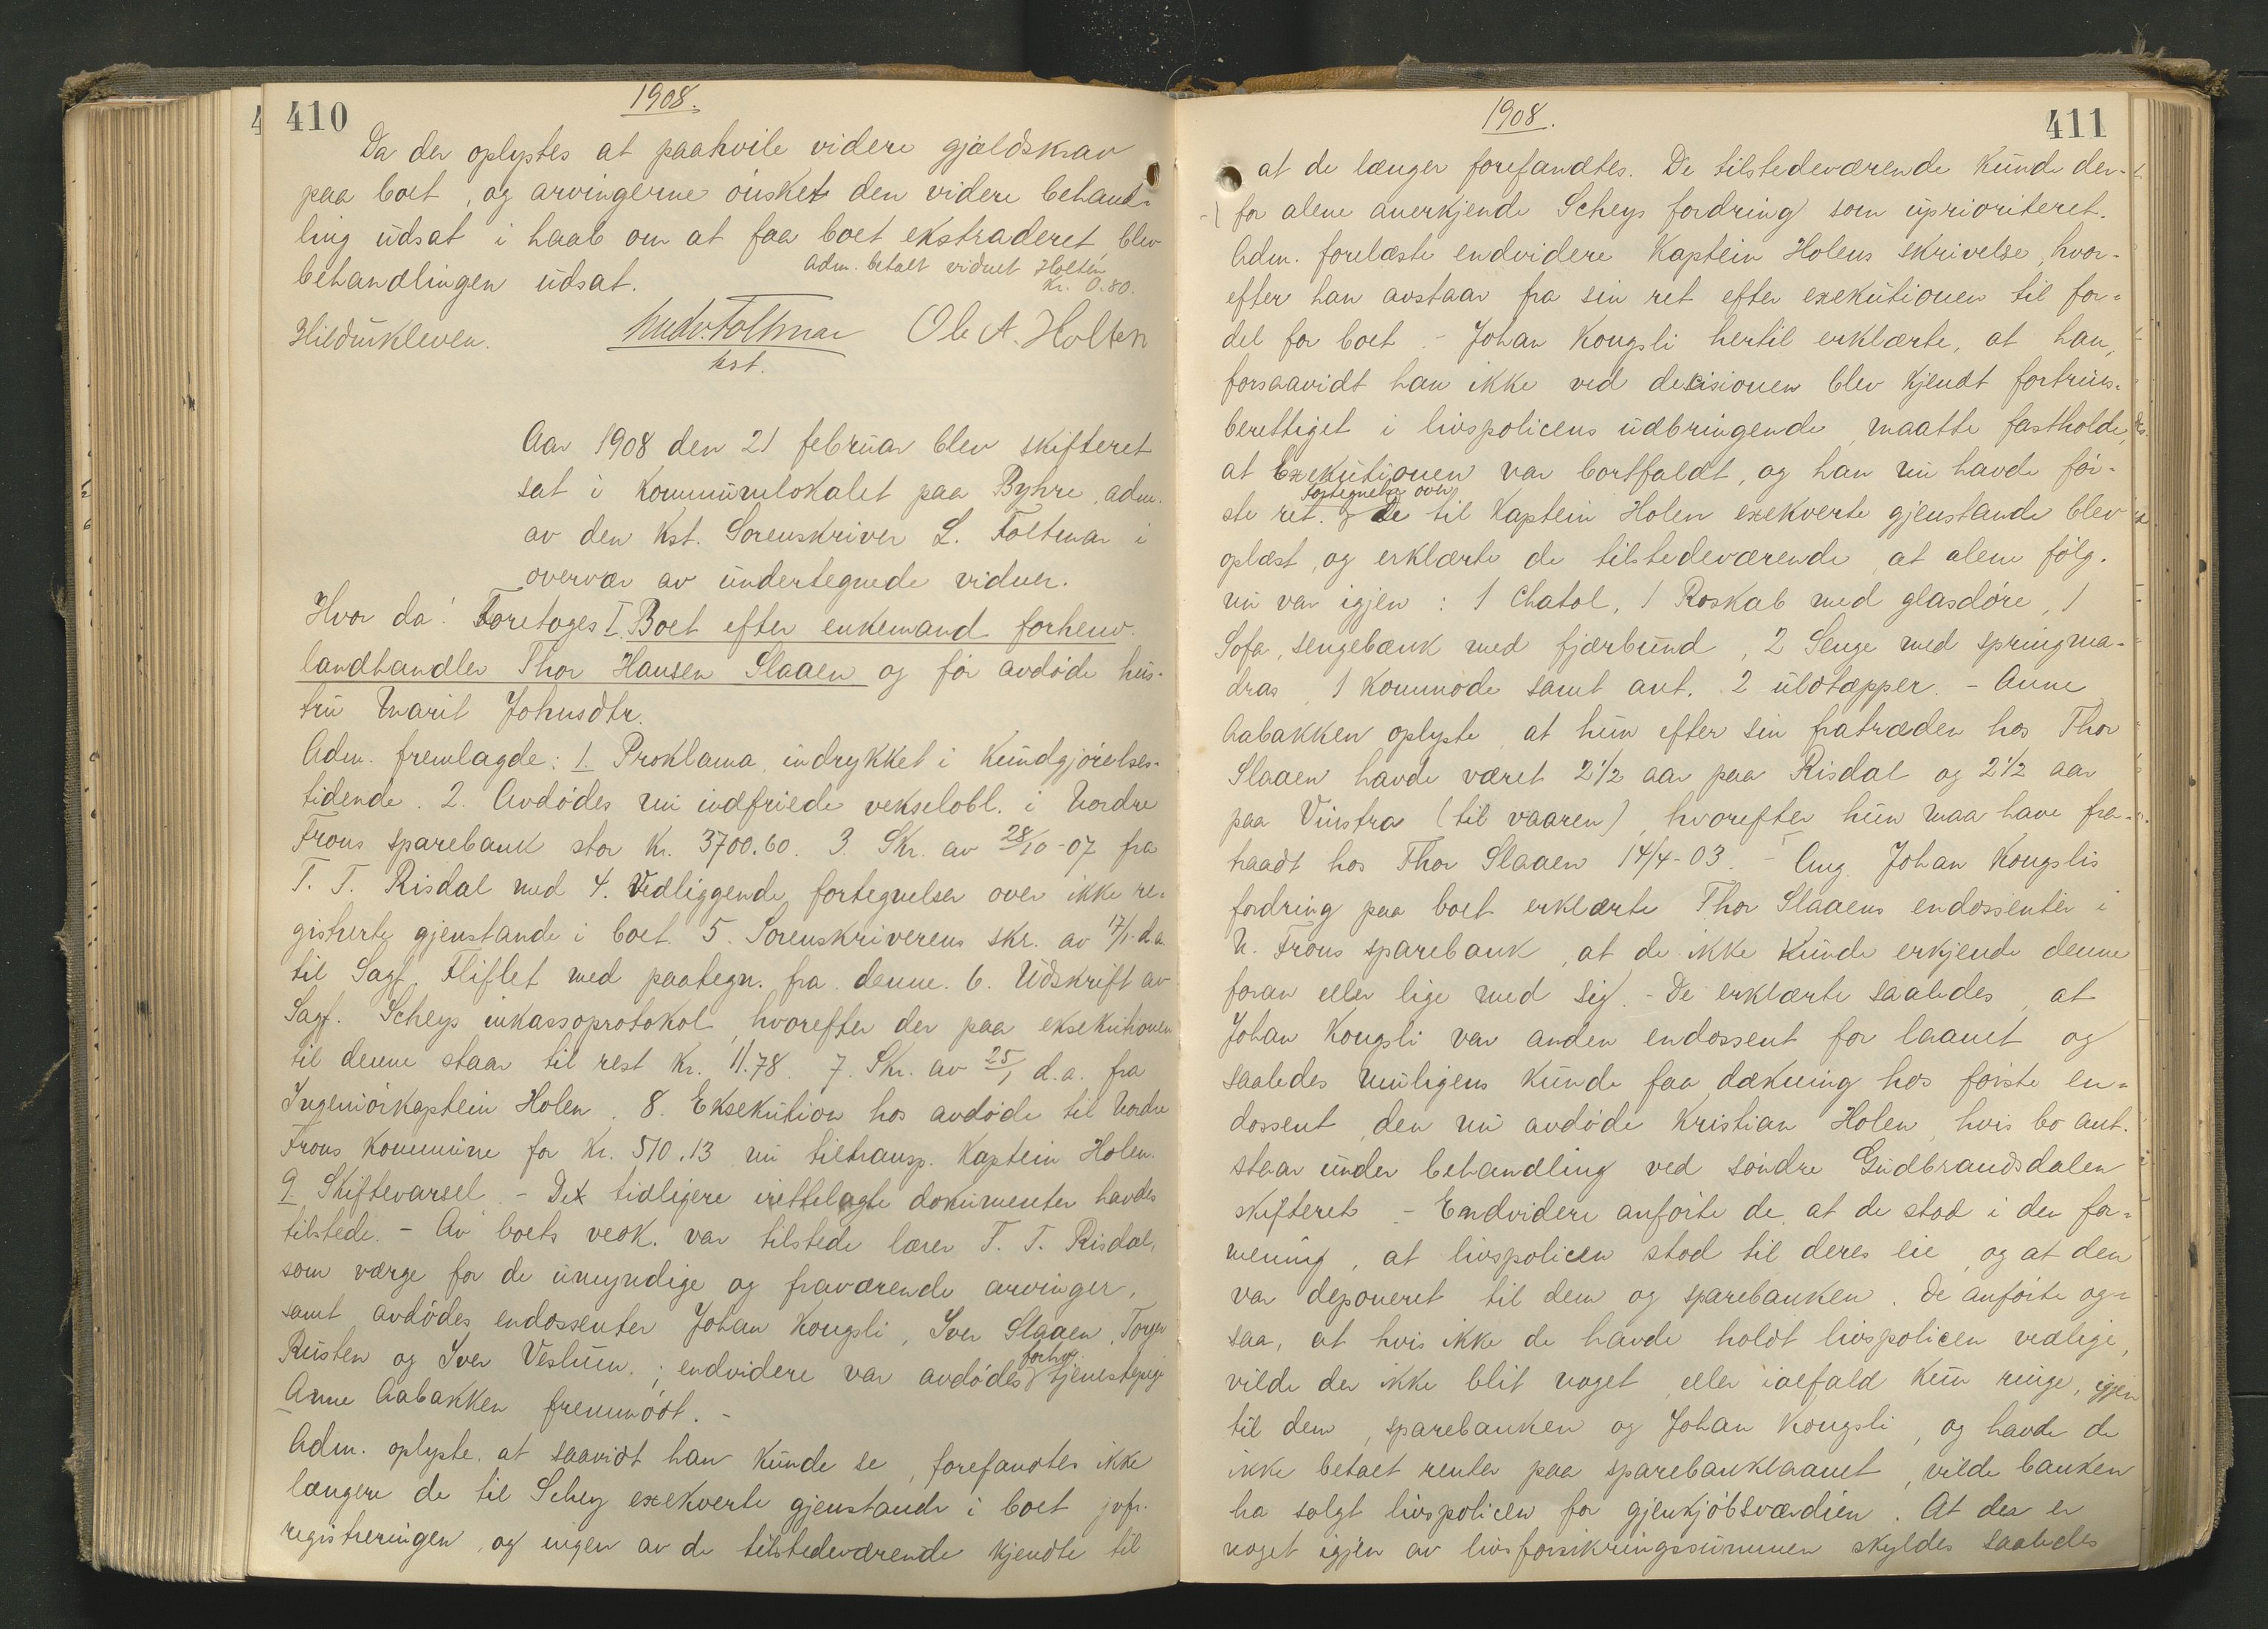 410
1908.
Da der oplystes at paahvile videre gjældskrav
paa boet, og arvingerne ønsket den videre behand-
ling udsat i haab om at faa boet ekstraderet, blev
behandlingen udsat.
Adm. betalt vidnet Holten
kr. 0.80.
Hildurkleven. Ludv. Foltmar Ole A. Holten
kst.
Aar 1908 den 21 februar blev skifteret
sat i kommunelokalet paa Byhre, adm.
av den kst. Sorenskriver L. Foltmar i
overvær av undertegnede vidner.
Hvor da: Foretoges I. Boet efter enkemand forhenv.
landhandler Thor Hansen Slaaen og før avdøde hus-
tru Marit Johnsdtr.
Adm. fremlagde: 1. Proklama indrykket i Kundgjørelses-
tidende. 2. Avdødes nu indfriede vekselobl. i Nordre
Frons sparebank stor kr. 3700.60. 3. Skr. av 28/10-07 fra
T. T. Risdal med 4. Vedliggende fortegnelser over ikke re-
gistrerte gjenstande i boet. 5. Sorenskriverens skr. av 17/1 d.a.
til Sagf. Fliflet med paategn. fra denne. 6. Udskrift av
Sagf. Scheys inkassoprotokol, hvorefter der paa eksekutionen
til denne staar til rest kr. 11.78. 7. Skr. av 25/1 d.a. fra
Ingeniørkaptein Holen. 8. Eksekution hos avdøde til Nordre
Frons kommune for kr. 510.13 nu tiltransp. Kaptein Holen.
9. Skiftevarsel. - De tidligere irettelagte dokumenter havdes
tilstede. - Av boets vedk. var tilstede lærer T. T. Risdal,
som værge for de umyndige og fraværende arvinger,
samt avdødes endossenter Johan Kongsli, Iver Slaaen, Torger
Rusten og Iver Veslum.; endvidere var avdødes forhv. tjenestepige
Anne Aabakken fremmødt. -
Adm. oplyste, at saavidt han kunde se, forefandtes ikke
længere de til Schey exekverte gjenstande i boet jvfr.
registreringen, og ingen av de tilstedeværende kjendte til
411
1908.
at de længer forefandtes. De tilstedeværende kunde der-
for alene anerkjende Scheys fordring som uprioriteret.
Adm. forelæste endvidere Kaptein Holens skrivelse, hvor-
efter han avstaar fra sin ret efter exekutionen til for-
del for boet. - Johan Kongsli hertil erklærte, at han,
forsaavidt han ikke ved decisionen blev kjendt fortrins-
berettiget i livspolicens udbringende, maatte fastholde,
at Exekutionen var bortfaldt, og han nu havde før-
ste ret. Fortegnelse over de til Kaptein Holen exekverte gjenstande blev
oplæst, og erklærte de tilstedeværende at alene følg.
nu var igjen: 1 Chatol, 1 Roskab med glasdøre, 1
Sofa, sengebænk med fjærbund, 2 Senge med springma-
dras, 1 Kommode samt ant. 2 uldtæpper. - Anne
Aabakken oplyste, at hun efter sin fratræden hos Thor
Slaaen havde været 2 1/2 aar paa Risdal og 2 1/2 aar
paa Vinstra (til vaaren), hvorefter hun maa have fra-
traadt hos Thor Slaaen 14/4-03. - Ang. Johan Kongslis
fordring paa boet erklærte Thor Slaaens endossenter i
N. Frons sparebank, at de ikke kunde erkjende denne
foran eller lige med sig. - De erklærte saaledes, at
Johan Kongsli var anden endossent for laanet og
saaledes muligens kunde faa dækning hos første en-
dossent, den nu avdøde Kristian Holen, hvis bo ant.
staar under behandling ved søndre Gudbrandsdalen
skifteret. - Endvidere anførte de, at de stod i den for-
mening, at livspolicen stod til deres eie, og at den
var deponeret til dem og sparebanken. De anførte og-
saa, at hvis ikke de havde holdt livspolicen vedlige,
vilde der ikke blit noget, eller ialfald kun ringe, igjen
til dem, sparebanken og Johan Kongsli, og havde de
ikke betalt renter paa sparebanklaanet, vilde banken
ha solgt livspolicen for gjenkjøbsværdien. At der er
noget igjen av livsforsikringssummen skyldes saaledes